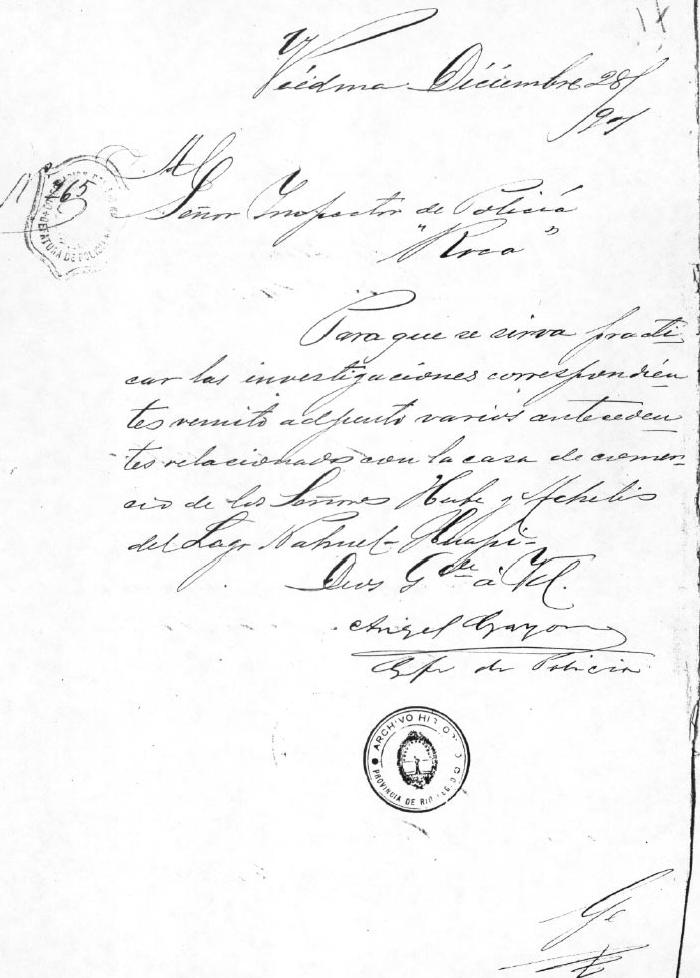 Viedma Diciembre 28/
Al
Nº 765
Señor Inspector de Policia
"Roca"
Para que se sirva practi-
car las investigaciones correspondien
tes remito adjunto varios anteceden
tes relacionados con la casa de comer-
cio de los Señores Hube y Achelis
del Lago Nahuel-Huapi-
Dios Gde á Vd.
Angel
Gefe de Policia
JEFATURA DE POLICIA
ARCHIVO HI
PROVINCIA DE RIO